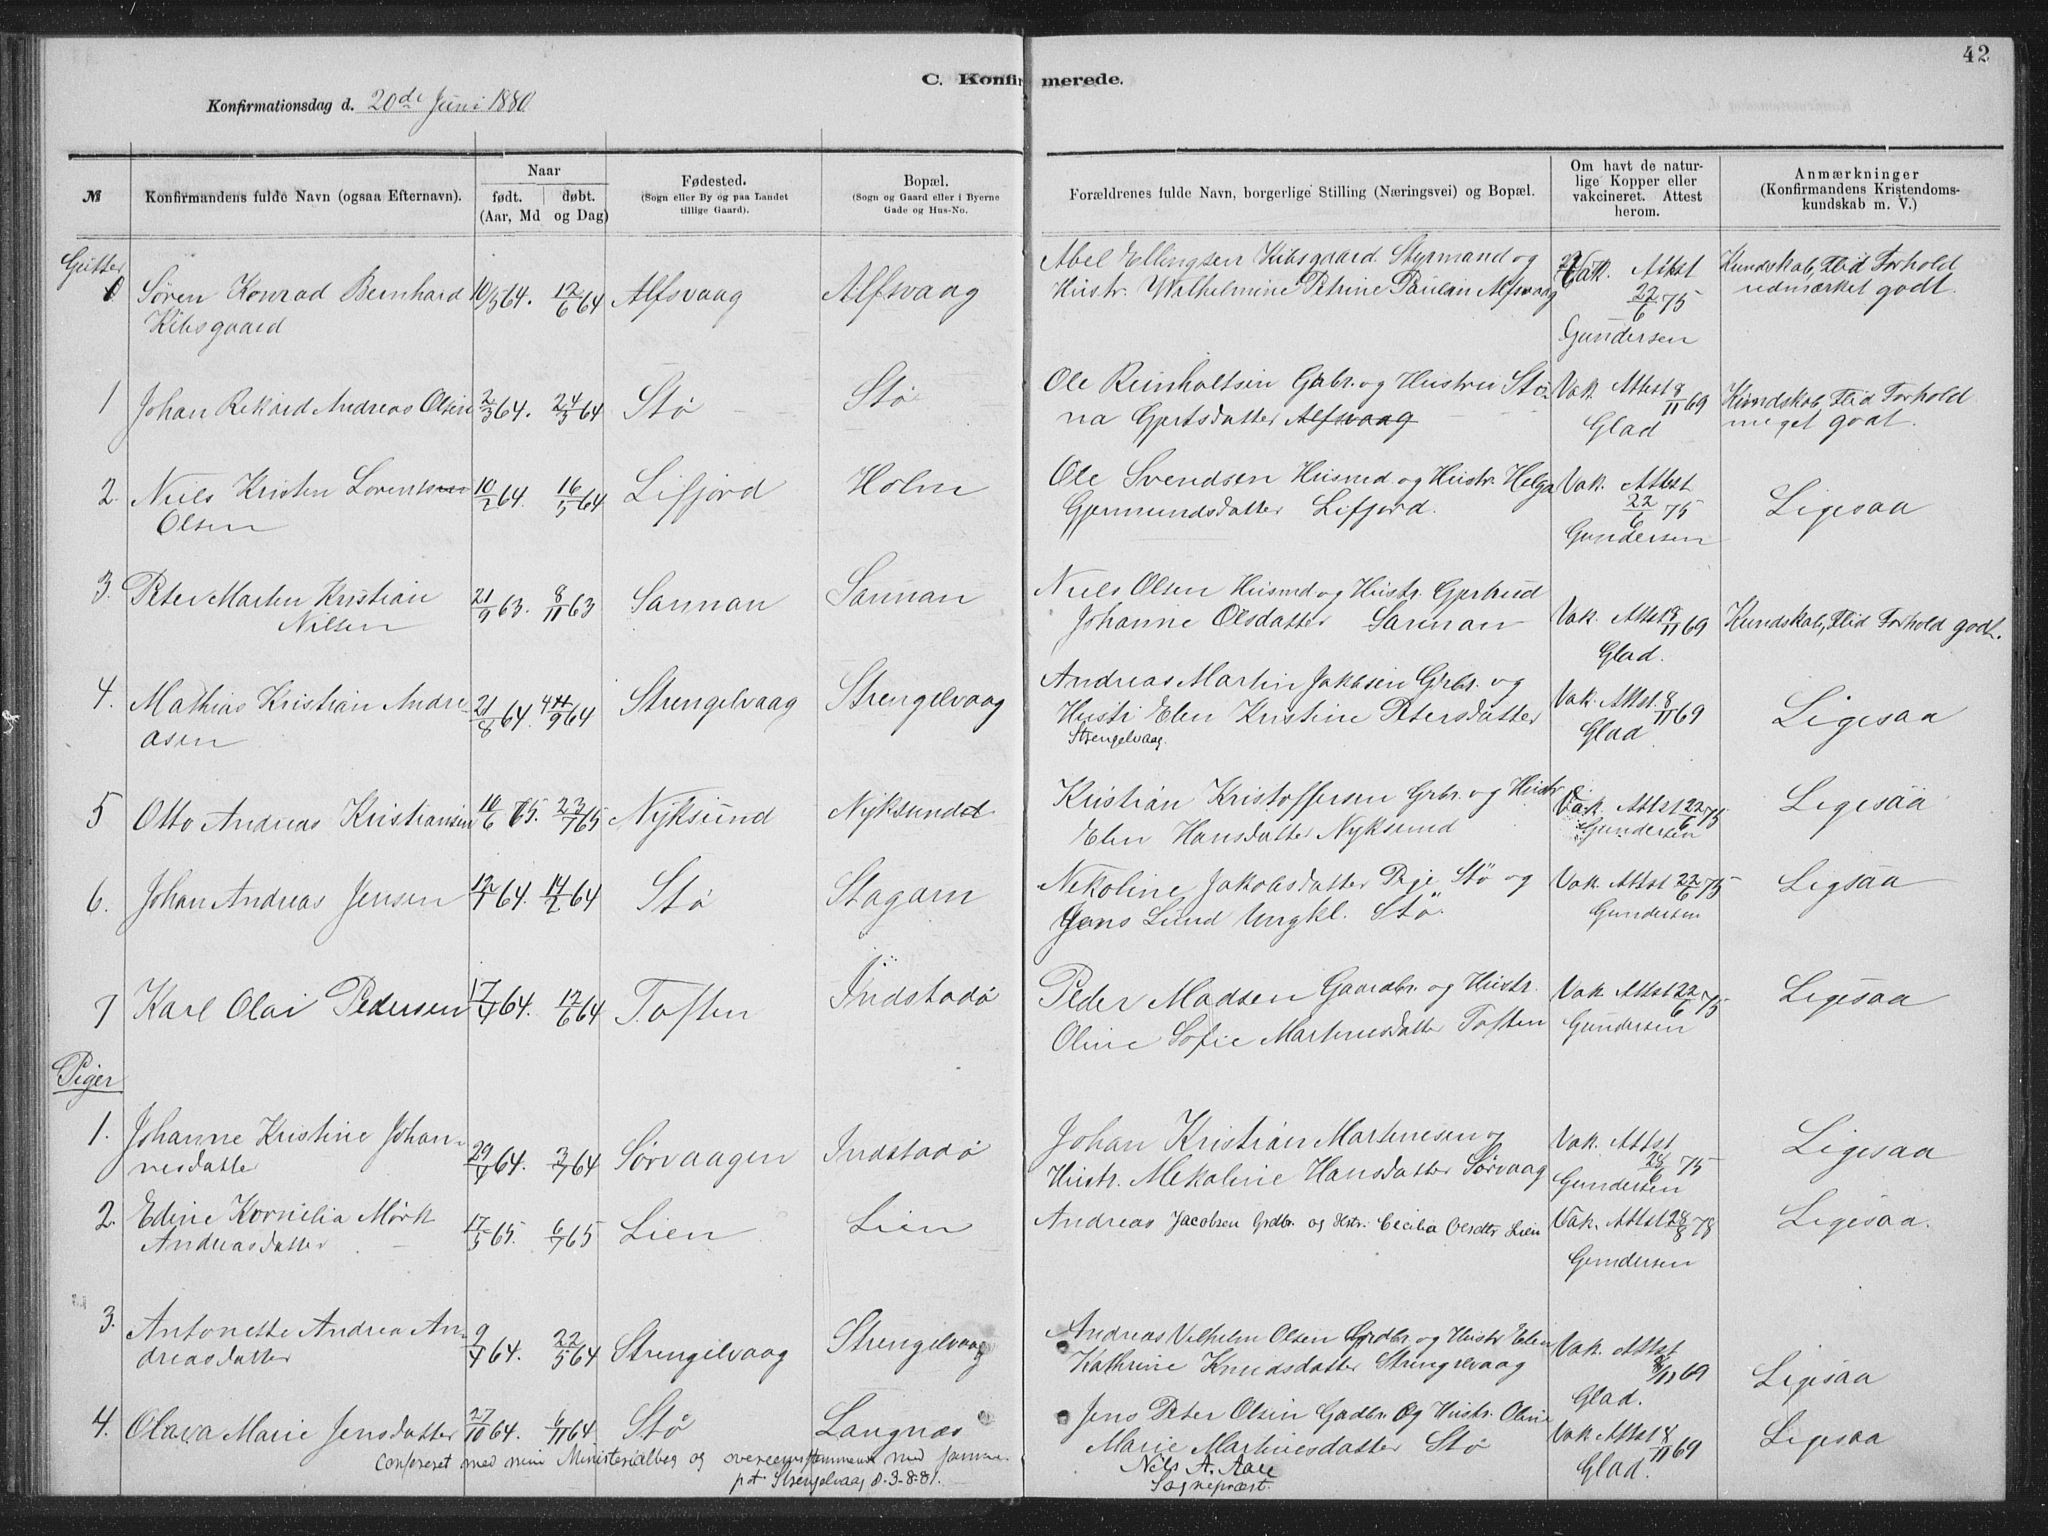 42
C. Konfirmerede.
Konfirmationsdag d. 20de Juni 1880
№
Konfirmandens fulde Navn (ogsaa Efternavn).
Naar
født. døbt.
(Aar, Md og Dag)
Fødested.
(Sogn eller By og paa Landet
tillige Gaard).
Bopæl.
(Sogn og Gaard eller i Byerne
Gade og Hus-No.
Forældrenes fulde Navn, borgerlige Stilling (Næringsvei) og Bopæl.
Om havt de natur-
lige Kopper eller
vakcineret. Attest
herom.
Anmærkninger
(Konfirmandens Kristendoms-
kundskab m. V.)
Gutter
Søren Konrad Bernhard 10/5 64. 12/6 64 Alfsvaag Alfsvaag
Kibsgaard
Abel Ellingsen Kibsgaard Styrmand og
Hustr. Wilhelmine Petrine Paulsen Alfsvaag
Vak. Attst
22/6 75
Gundersen
Kundskab, Flid Forhold
udmærket godt.
1 Johan Rikard Andreas Olsen 2/3 64. 24/3 64 Stø Stø
Ole Reinholtsen Grbr. og Hustru Stø
na Gjertsdatter Alfsvaag
Vak. Attst 8/11 69
Glad
Kundskab, Flid Forhold
meget godt.
2. Niels Kristen Lorentsen 10/2 64. 16/5 64 Lifjord Holm
Olsen
Ole Svendsen Husmd og Hustr. Helga
Gjermundsdatter Lifjord.
Vak. Attst
22/6 75
Gundersen
Ligesaa
3. Peter Martin Kristian 21/9 63. 8/11 63 Sannan Sannan
Nilsen
Niels Olsen Husmd og Hustr. Gjertrud
Johanne Olsdatter Sannan
Vak. Attst 8/11 69
Glad.
Kundskab, Flid Forhold godt.
4. Mathias Kristian Andre- 21/8 64. 4/9 64 Strengelvaag Strengelvaag
asen
Andreas Martin Jakobsen Grbr. og
Hustr Elen Kristine Petersdatter
Strengelvaag.
Vak. Attst. 8/11 69
Glad
Ligesaa
5 Otto Andreas Kristiansen 16/6 65. 23/7 65 Nyksund Nyksund
Kristian Kristoffersen Grbr. og Hustr
Elen Hansdatter Nyksund
Vak. Attst 22/6 75
Gundersen
Ligesaa
6. Johan Andreas Jensen 12/1 64. 14/2 64 Stø Stagarn
Nekoline Jakobsdatter Pige Stö og
Jens Lund Ungkl. Stö.
Vak. Attst 22/6 75
Gundersen
Ligsaa
7 Karl Olai Pedersen 17/4 64. 12/6 64 Toften Indstadø
Peder Madsen Gaardbr. og Hustr.
Oline Sofie Martinesdatter Toften
Vak. Attst 22/6 75
Gundersen
Ligesaa
Piger
1. Johanne Kristine Johan- 29/4 64. 3/7 64 Sørvaagen Indstadø
nesdatter
Johan Kristian Martinesen og
Hustr. Mekoline Hansdatter Sørvaag
Vak. Attst
28/6 75
Gundersen
Ligesaa
2. Edine Kornelia Mørk 17/5 65. 6/7 65 Lien Lien
Andreasdatter
Andreas Jacobsen Grdbr. og Hstr. Cecilia Olsdtter Lien
Vak. Attst 28/8 78
Gundersen
Ligesaa.
3. Antonette Andrea An- 9/4 64. 22/5 64 Strengelvaag Strengelvaag
dreasdatter
Andreas Vilhelm Olsen Grdbr. og Hustr Elen
Kathrine Knudsdatter Strengelvaag
Vak. Attst
8/11 69
Glad.
Ligesaa
4. Olava Marie Jensdatter 27/10 64. 6/11 64 Stø Langnæs
Jens Peter Olsen Gadbr. og Hustr. Oline
Marie Martinesdatter Stø
Vak Attst 8/11 69
Glad.
Ligesaa
Confereret med min Ministerialbog og overeensstemmende med samme.
pt. Strengelvaag d. 3-8-81.
Nils A. Aale
Sognepræst.